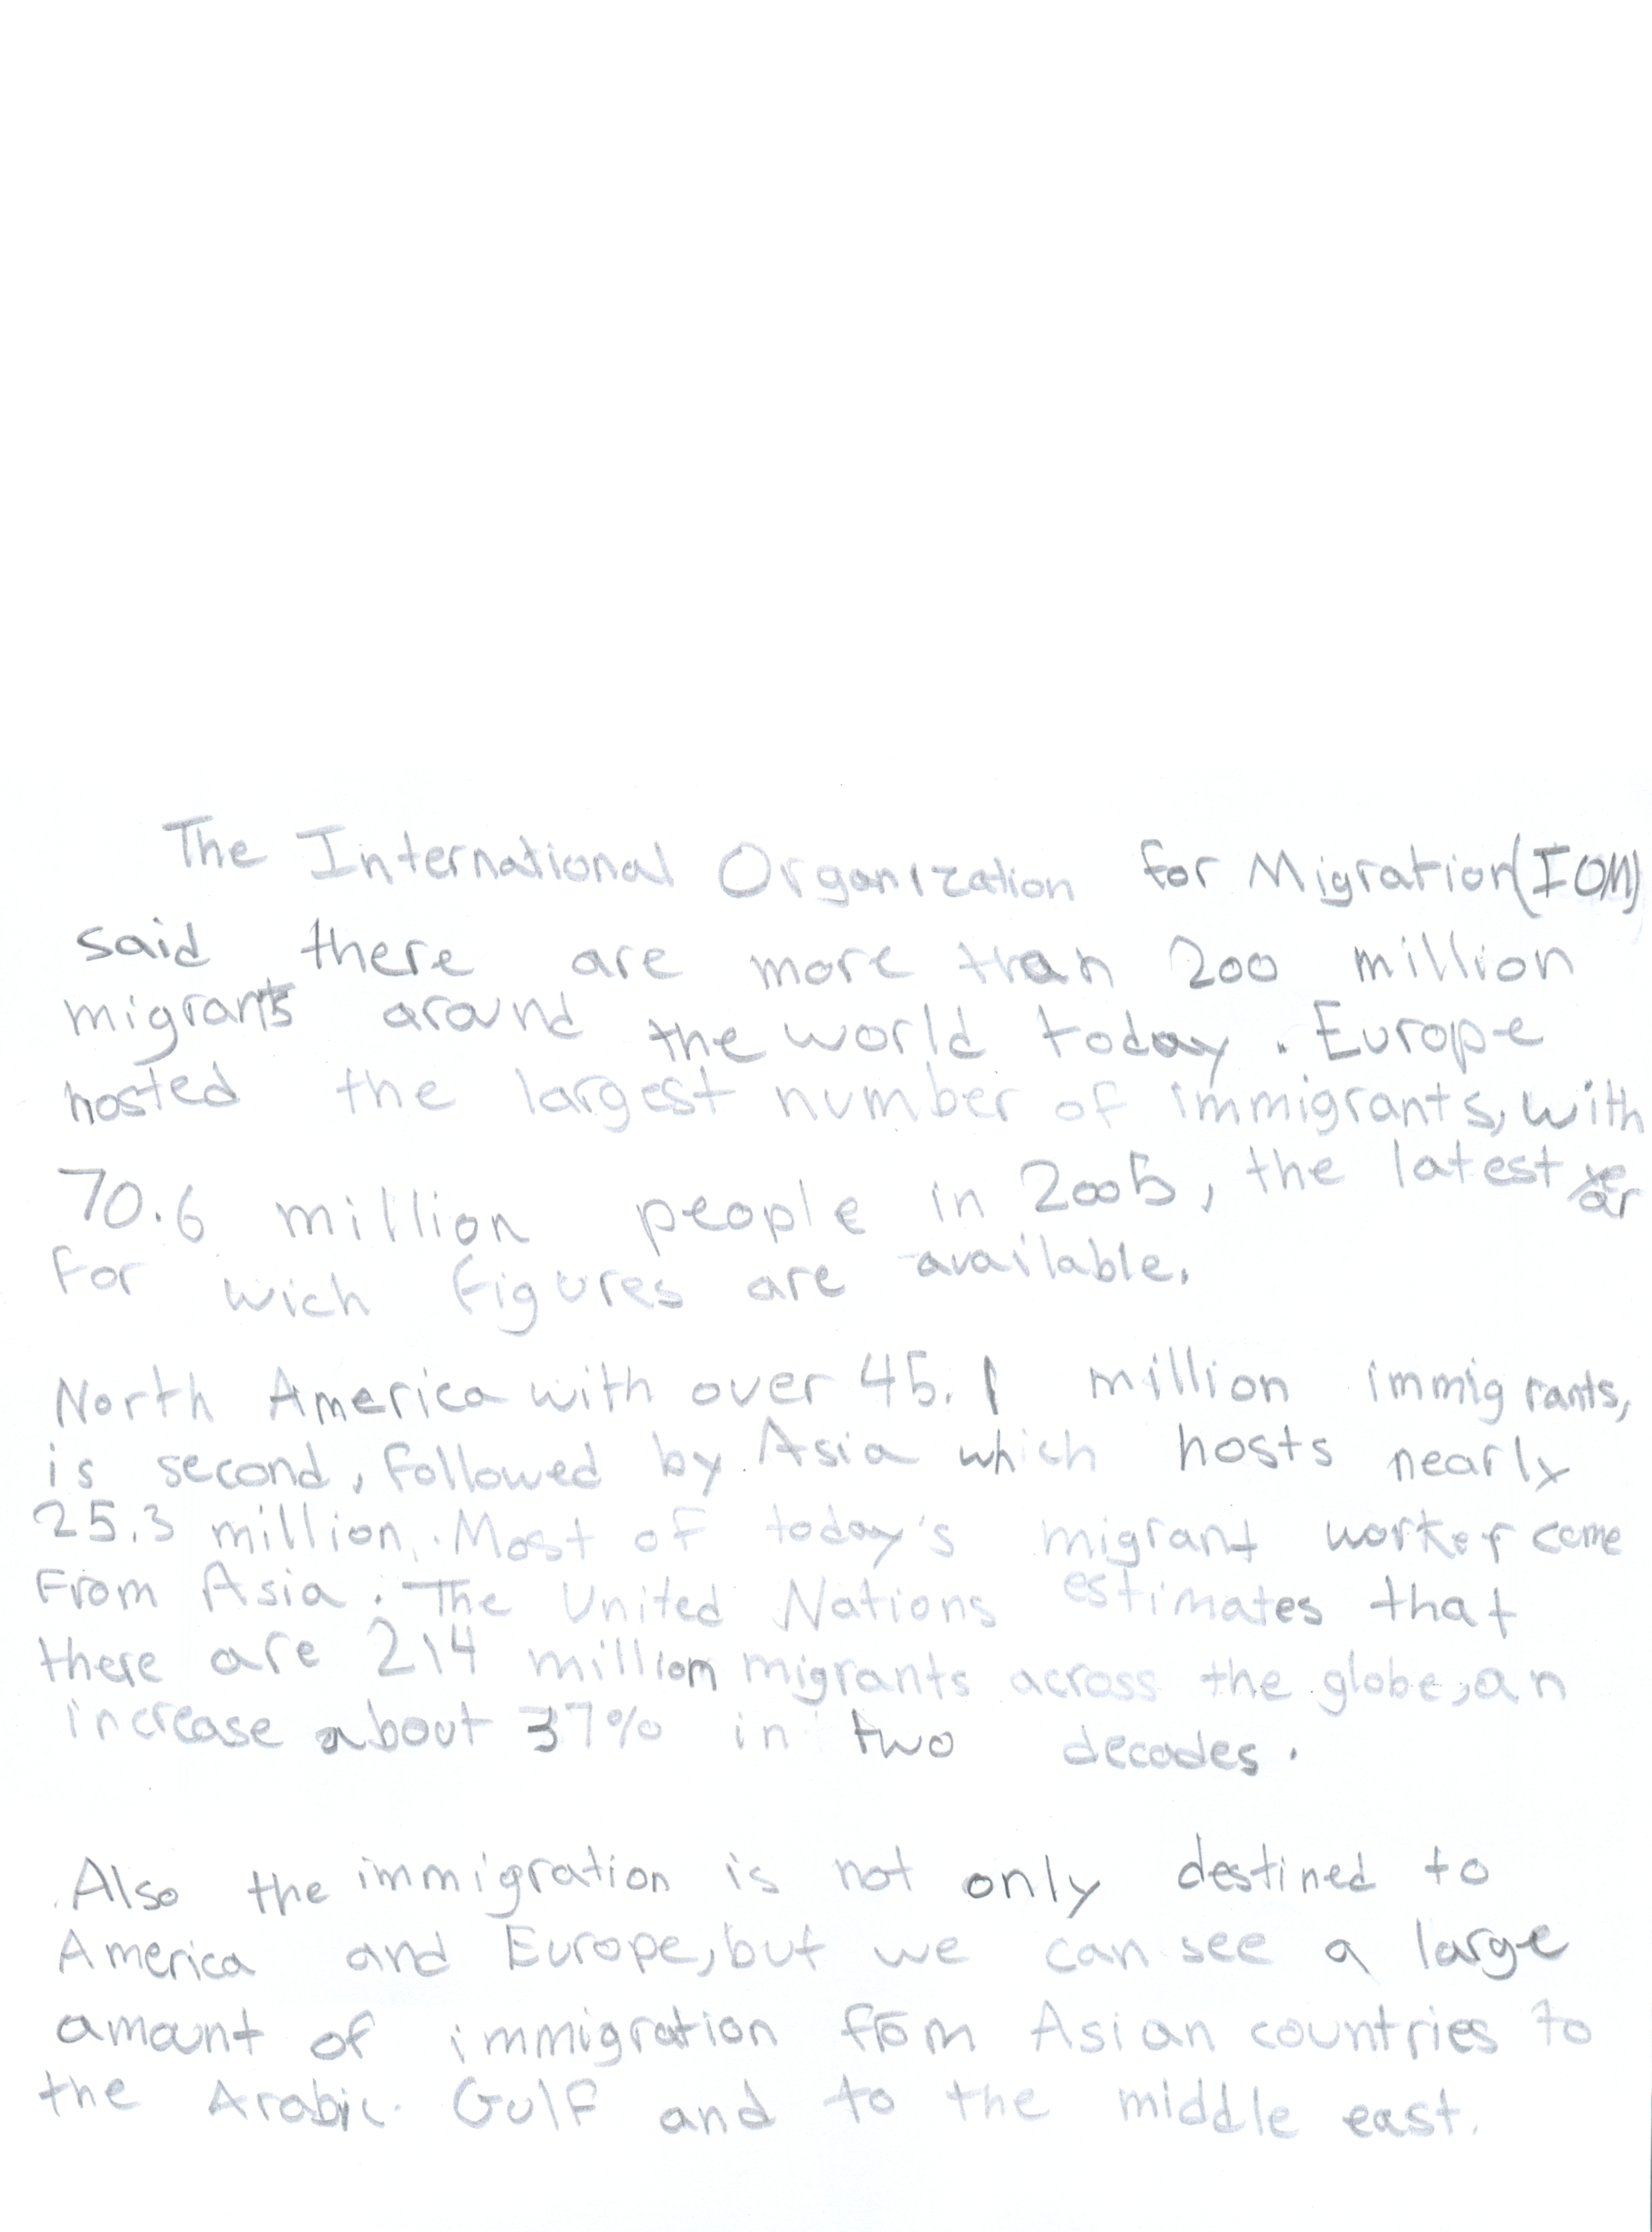 The International Organization for Migration(IOM)
said there are more than 200 million
migrants around the world today. Europe
hosted the largest number of immigrants, with
70.6 million people in 2005, the latest year
For wich figures are available.
North America with over 45.1 million immigrants,
is second, followed by Asia which hosts nearly
25.3 million. Most of today's migrant worker come
From Asia. The United Nations estimates that
there are 214 million migrants across the globe, an
increase about 37% in two decades.
Also the immigration is not only destined to
America and Europe, but we can see a large
amount of immigration from Asian countries to
the Arabic Gulf and to the middle east.